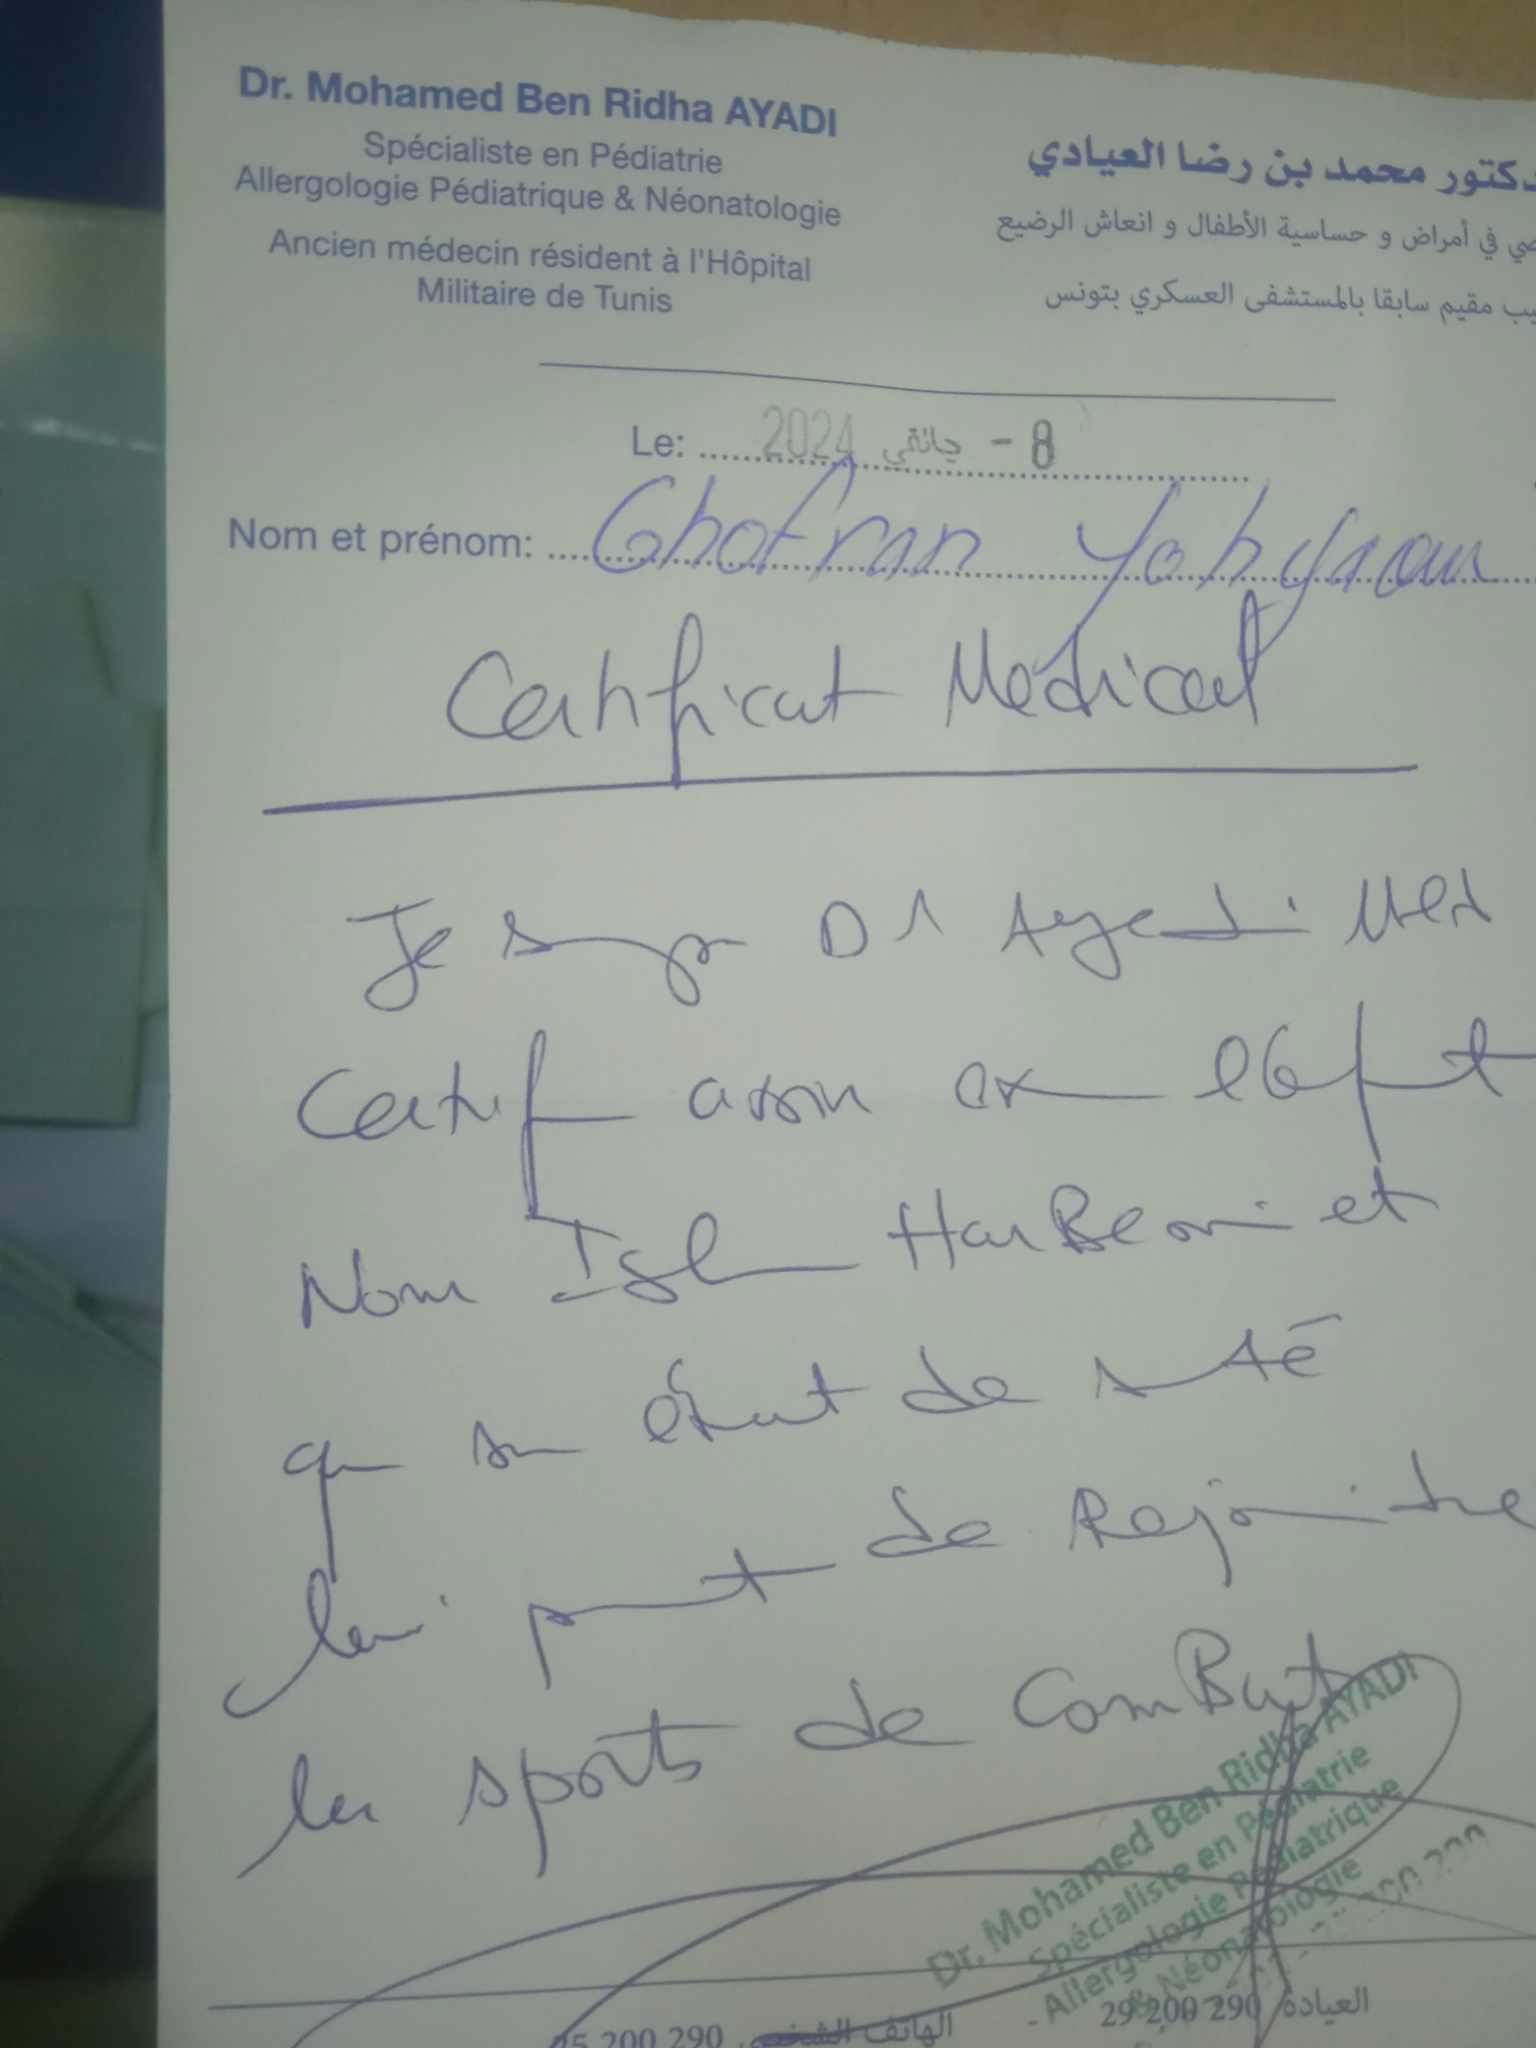 Dr. Mohamed Ben Ridha AYADI
Spécialiste en Pédiatrie
Allergologie Pédiatrique & Néonatologie
Ancien médecin résident à l'Hôpital
Militaire de Tunis
دكتور محمد بن رضا العيادي
في أمراض و حساسية الأطفال و انعاش الرضيع
مقيم سابقا بالمستشفى العسكري بتونس
Le: 2024 جانفي - 8
Nom et prénom: Ghofran
Certificat Medical
Je Dr Ayadi Med
Certif avoir ex
Nom et
que son état de santé
lui de Rejoindre
les sports de ComBat
Dr. Mohamed Ben Ridha AYADI
Spécialiste en Pédiatrie
Allergologie Pédiatrique
& Néonatologie
العيادة 29 200 290
الهاتف 200 290